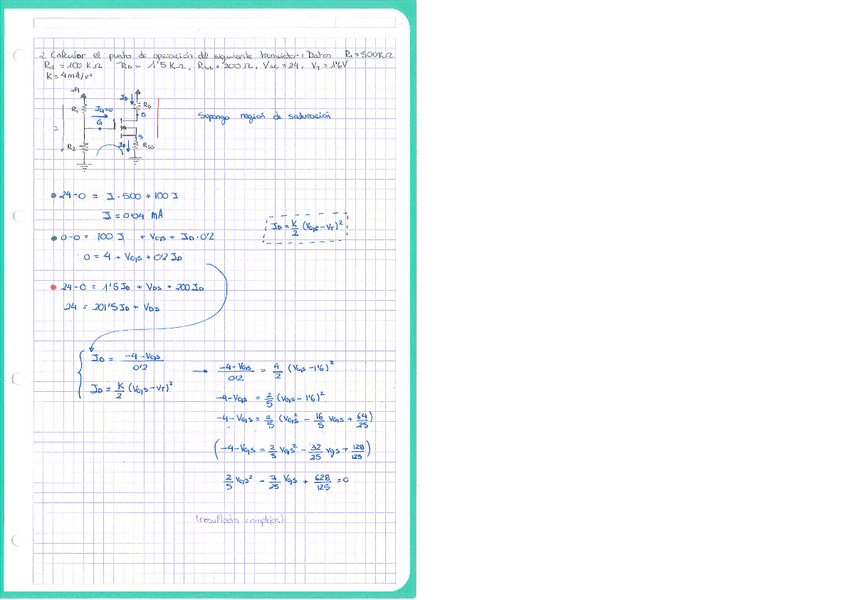 2. Calcular el punto de operación del siguiente transistor: Datos R1=500KΩ
R2=100KΩ RD= 1'5KΩ, RSS=200Ω, Vcc=24, VT=1'6V
K=4mA/V²
24
ID
R1
IG=0
RD
D
G
I
S
R2
ID
RSS
Supongo región de saturación
24-0 = I·500+100I
I=0'04 mA
ID=K/2 (VGS-VT)²
0-0 = 100I + VGS + ID·0'2
0=4+VGS+0'2ID
24-0=1'5ID+VDS+200ID
24=201'5ID+VDS
ID= -4-VGS/0'2
ID=K/2 (VGS-VT)²
→ -4-VGS/0'2 = 4/2 (VGS-1'6)²
-4-VGS = 2/5 (VGS-1'6)²
-4-VGS= 2/5 (VGS² - 16/5 VGS + 64/25)
(-4-VGS= 2/5 VGS² - 32/25 VGS + 128/125)
2/5 VGS² - 7/25 VGS + 628/125 =0
(resultados complejos)